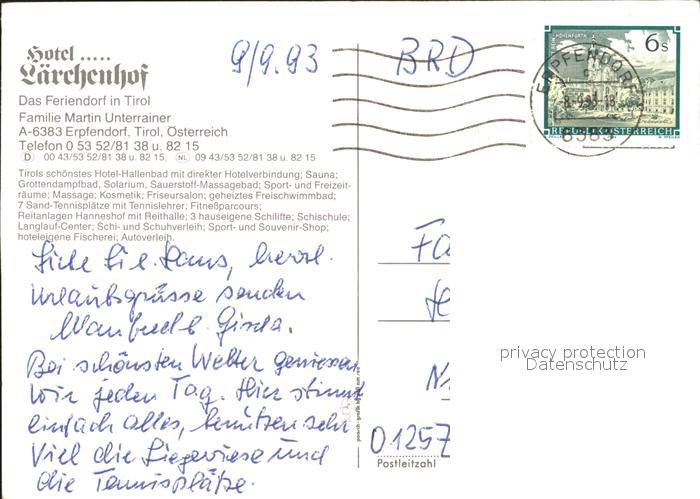 Hotel .....
Lärchenhof
Das Feriendorf in Tirol
Familie Martin Unterrainer
A-6383 Erpfendorf, Tirol, Österreich
Telefon 0 53 52/81 38 u. 82 15
D 00 43/53 52/81 38 u. 82 15, NL 09 43/53 52/81 38 u. 82 15
Tirols schönstes Hotel-Hallenbad mit direkter Hotelverbindung; Sauna;
Grottendampfbad, Solarium, Sauerstoff-Massagebad; Sport- und Freizeit-
räume; Massage; Kosmetik; Friseursalon; geheiztes Freischwimmbad;
7 Sand-Tennisplätze mit Tennislehrer; Fitneßparcours;
Reitanlagen Hanneshof mit Reithalle; 3 hauseigene Schilifte; Schischule;
Langlauf-Center; Schi- und Schuhverleih; Sport- und Souvenir-Shop;
hoteleigene Fischerei; Autoverleih.
9/9.93
BRD
6s
ERPFENDORF
REPUBLIK ÖSTERREICH
Hans, herzl.
Urlaubsgrüsse senden
Manfred & Gisela.
Bei schönsten Wetter geniessen
wir jeden Tag. Hier stimmt
einfach alles, benützen sehr
viel die Liegewiese und
die Tennisplätze.
Fa
01257
Postleitzahl
privacy protection
Datenschutz